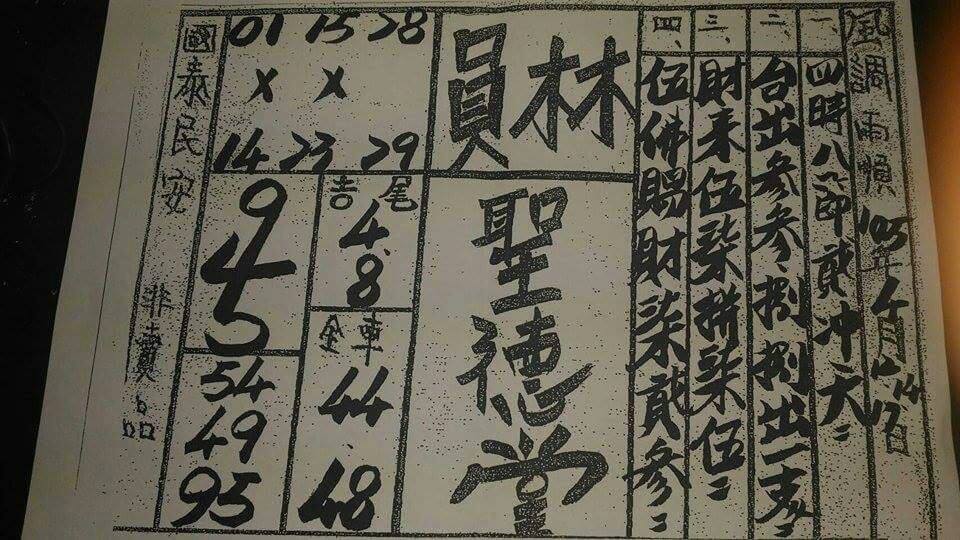 風調雨順
105年4月
一、四時八節貳冲天
二、台出參參捌捌出一支
三、財來伍柒拼柒伍
四、伍佛賜財柒貳參
員林
聖德堂
01 15 28
X X
14 23 29
吉尾
4.8
全車
44.48
9
4
5
54
49
95
國泰民安
非賣品